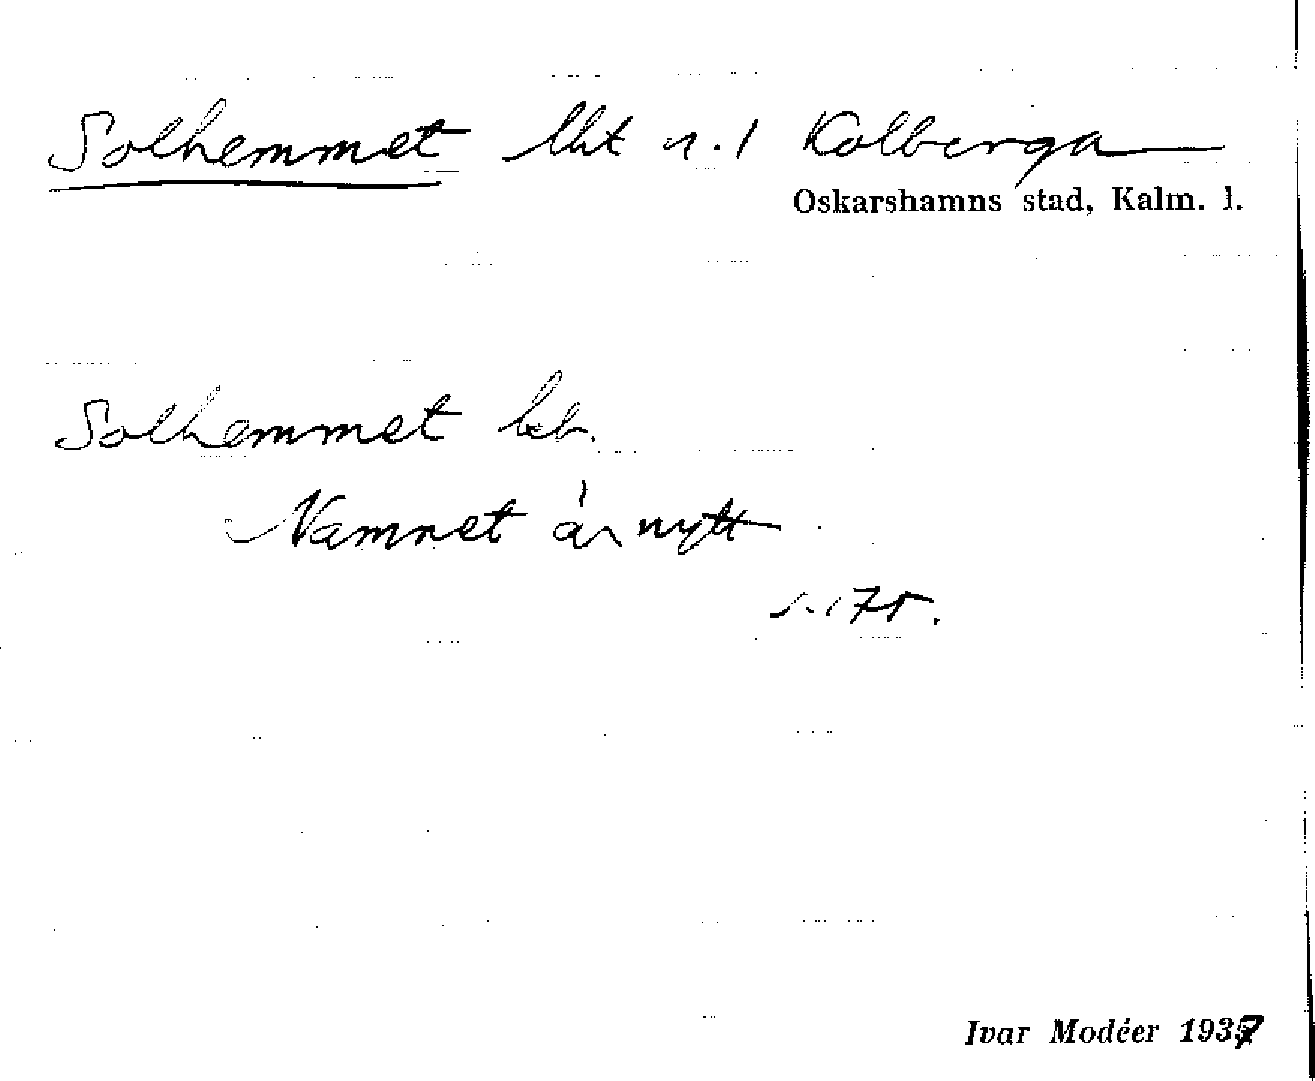 Solhemmet lht n. 1 Kolberga
Oskarshamns stad, Kalm. l.
Solhemmet beb.
Namnet är nytt
s. 175.
Ivar Modéer 1937